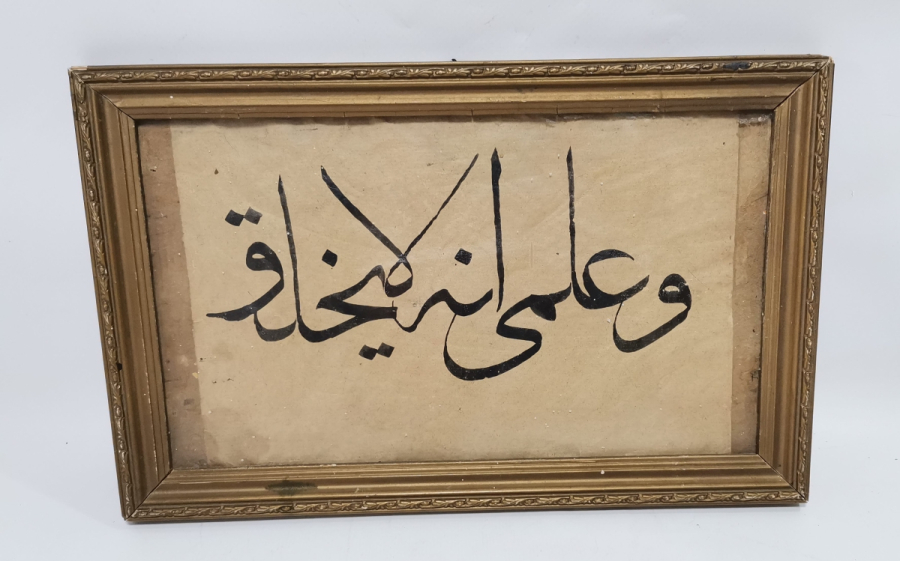 وعلمى انه لا يخلاو